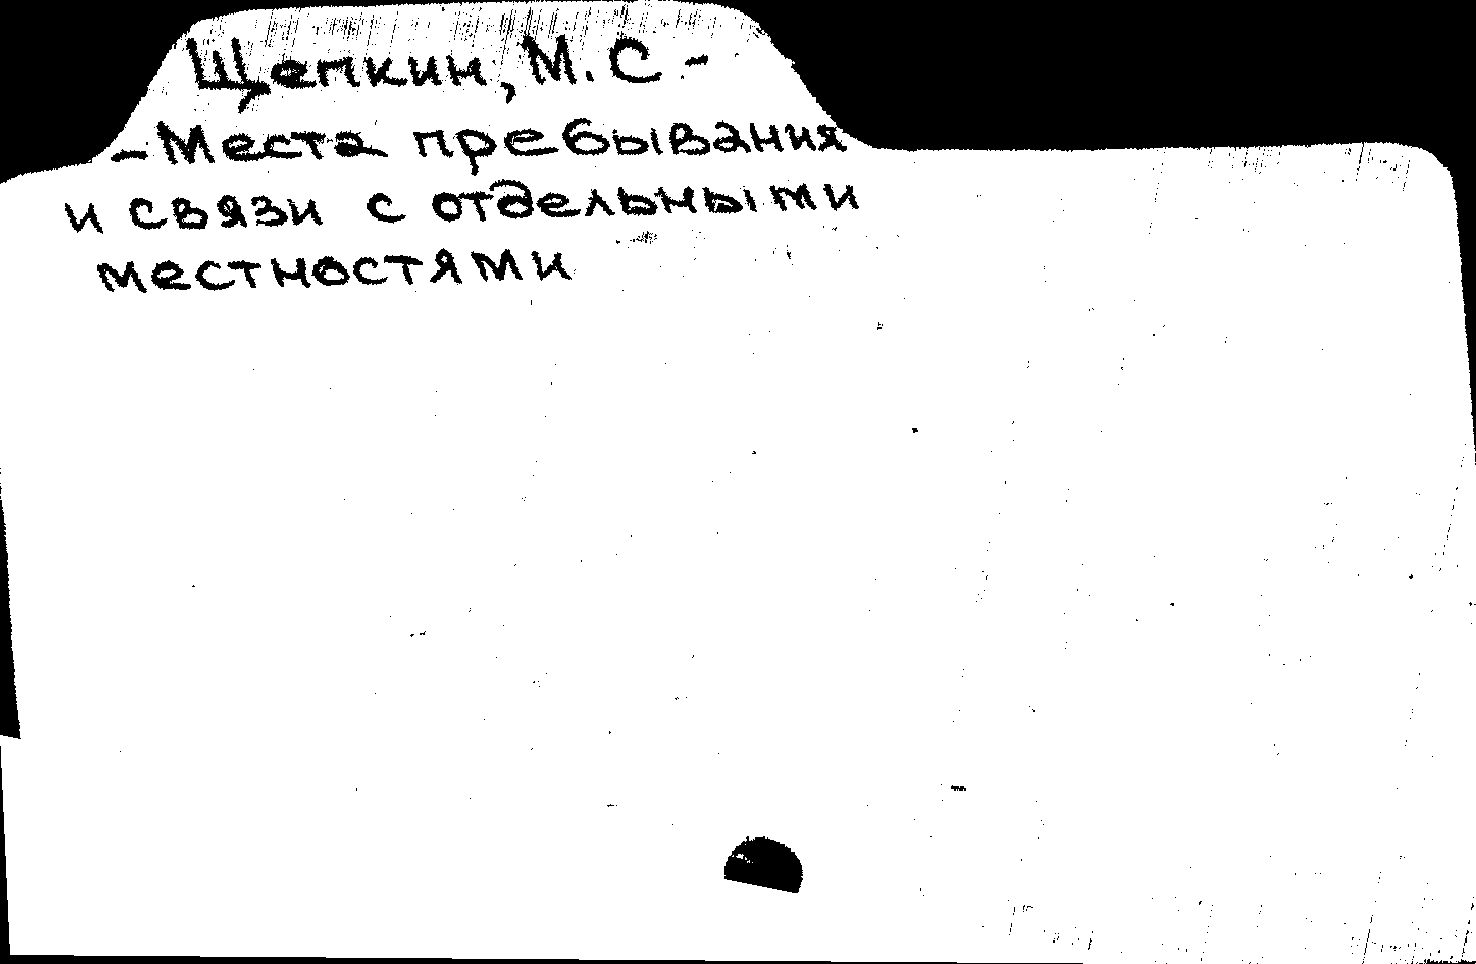 Щепкин, М. С -
- Места пребывания
и связи с отдельными
местностями